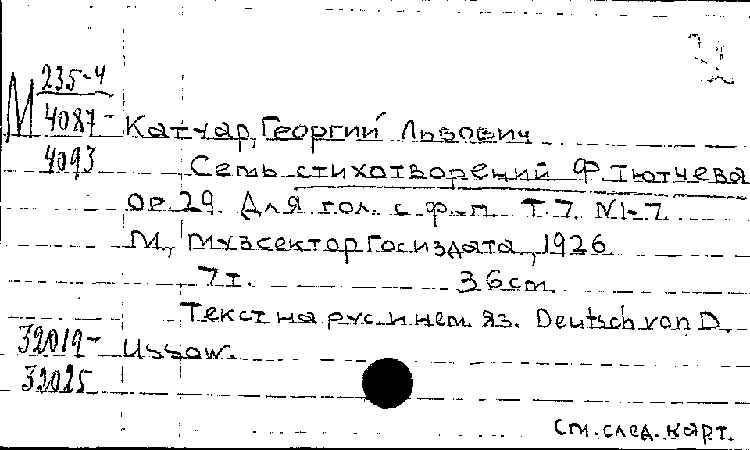 М 235-4
4087-
4093
Катуар, Георгий Львович
Семь стихотворений Ф. Тютчева
ор. 29. Для гол. с ф-п. Т. 7. N1-7.
М., Музсектор Госиздата, 1926.
7 т. 36 cm.
Текст на рус. и нем. яз. Deutsch von D.
Ussow.
32019-
32025
См. след. карт.